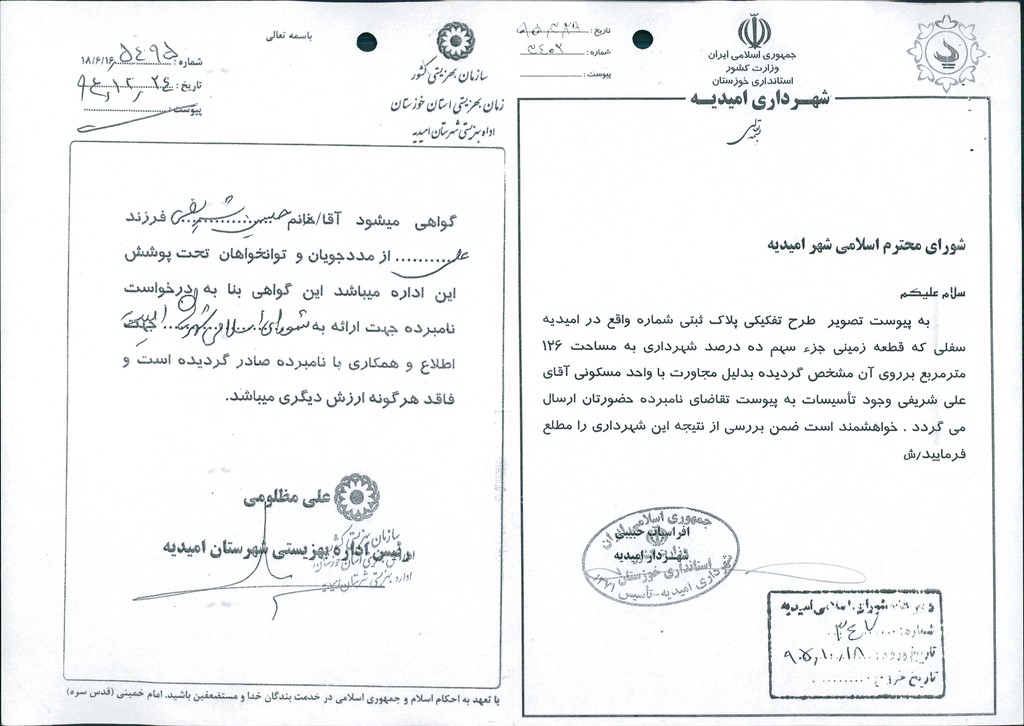 جمهوری اسلامی ایران
وزارت کشور
استانداری خوزستان
شهرداری امیدیه
تاریخ:
شماره: ۳۴۵۲
پیوست:
شورای محترم اسلامی شهر امیدیه
سلام علیکم
به پیوست تصویر طرح تفکیکی پلاک ثبتی شماره واقع در امیدیه
سفلی که قطعه زمینی جزء سهم ده درصد شهرداری به مساحت ۱۲۶
مترمربع برروی آن مشخص گردیده بدلیل مجاورت با واحد مسکونی آقای
علی شریفی وجود تأسیسات به پیوست تقاضای نامبرده حضورتان ارسال
می گردد . خواهشمند است ضمن بررسی از نتیجه این شهرداری را مطلع
فرمایید/ش
جمهوری اسلامی ایران
افراسیاب حبیبی
شهردار امیدیه
استانداری خوزستان
شهرداری امیدیه-تأسیس ۱۳۷۱
دبیرخانه شورای اسلامی امیدیه
شماره: ۳۴۷
تاریخ ورود: ۹۵،۱۰،۱۸
تاریخ خروج:
باسمه تعالی
سازمان بهزیستی کشور
زمان بهزیستی استان خوزستان
اداه بهزیستی شهرستان امیدیه
شماره: ۱۸/۶/۱۶ ۵۴۹۵
تاریخ: ۹۴،۱۲،۲۴
پیوست:
گواهی میشود آقا/خانم حبیب شریفی فرزند
علی از مددجویان و توانخواهان تحت پوشش
این اداره میباشد این گواهی بنا به درخواست
نامبرده جهت ارائه به شورای اسلامی شهرستان امیدیه جهت
اطلاع و همکاری با نامبرده صادر گردیده است و
فاقد هرگونه ارزش دیگری میباشد.
علی مظلومی
رئیس اداره بهزیستی شهرستان امیدیه
سازمان بهزیستی کشور
اداره بهزیستی شهرستان امیدیه
با تعهد به احکام اسلام و جمهوری اسلامی در خدمت بندگان خدا و مستضعفین باشید. امام خمینی (قدس سره)